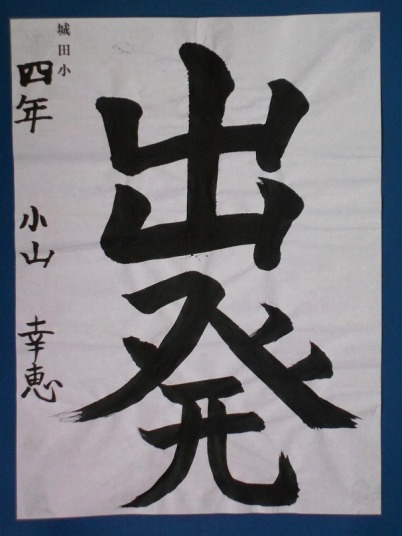 出発
城田小
四年 小山 幸恵